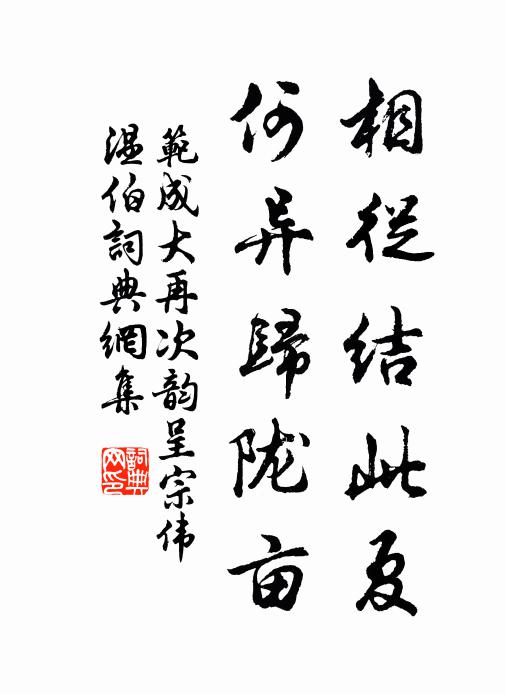 相從结此夏
何异歸陇亩
範成大再次韵呈宗伟
温伯詞典網集
詞典网印